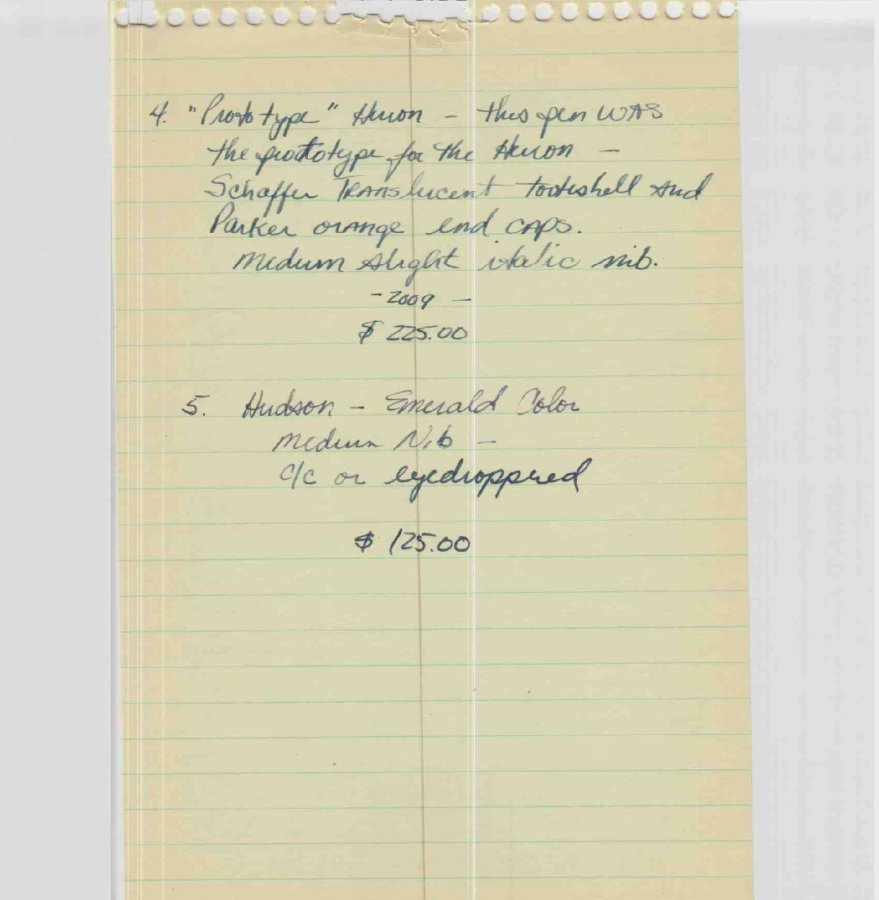 4. "Prototype" Heron - this pen WAS
the prototype for the Heron -
Schaffer Translucent tortishell and
Parker orange end caps.
medium slight italic nib.
- 2009 -
$ 225.00
5. Hudson - Emerald Color
medium Nib -
c/c or eyedroppered
$ 125.00